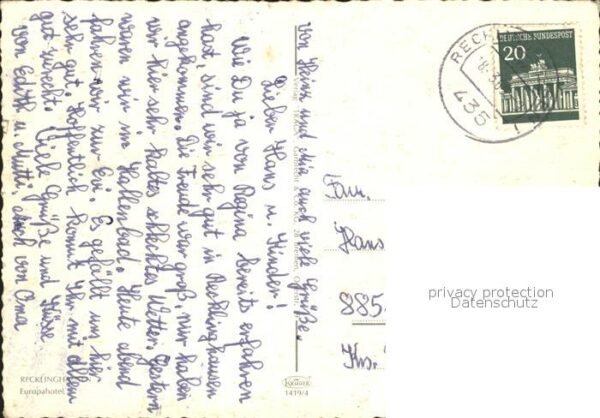 Lieber Hans u. Kinder!
Wie Du ja von Regina bereits erfahren
hast, sind wir sehr gut in Recklinghausen
angekommen. Die Freude war groß, nur haben
wir hier sehr kaltes schlechtes Wetter. Gestern
waren wir im Hallenbad. Heute abend
fahren wir zur Evi. Es gefällt uns hier
sehr gut. Hoffentlich kommt Ihr mit allem
gut zurecht. Viele Grüße und Küsse
von Edith u. Mutti, auch von Oma
von Heinz und Mia auch viele Grüße.
Fam.
Hans
885
Krs.
DEUTSCHE BUNDESPOST
20
RECK
435
RECKLINGH
Europahotel
KRÜGER
1419/4
privacy protection
Datenschutz